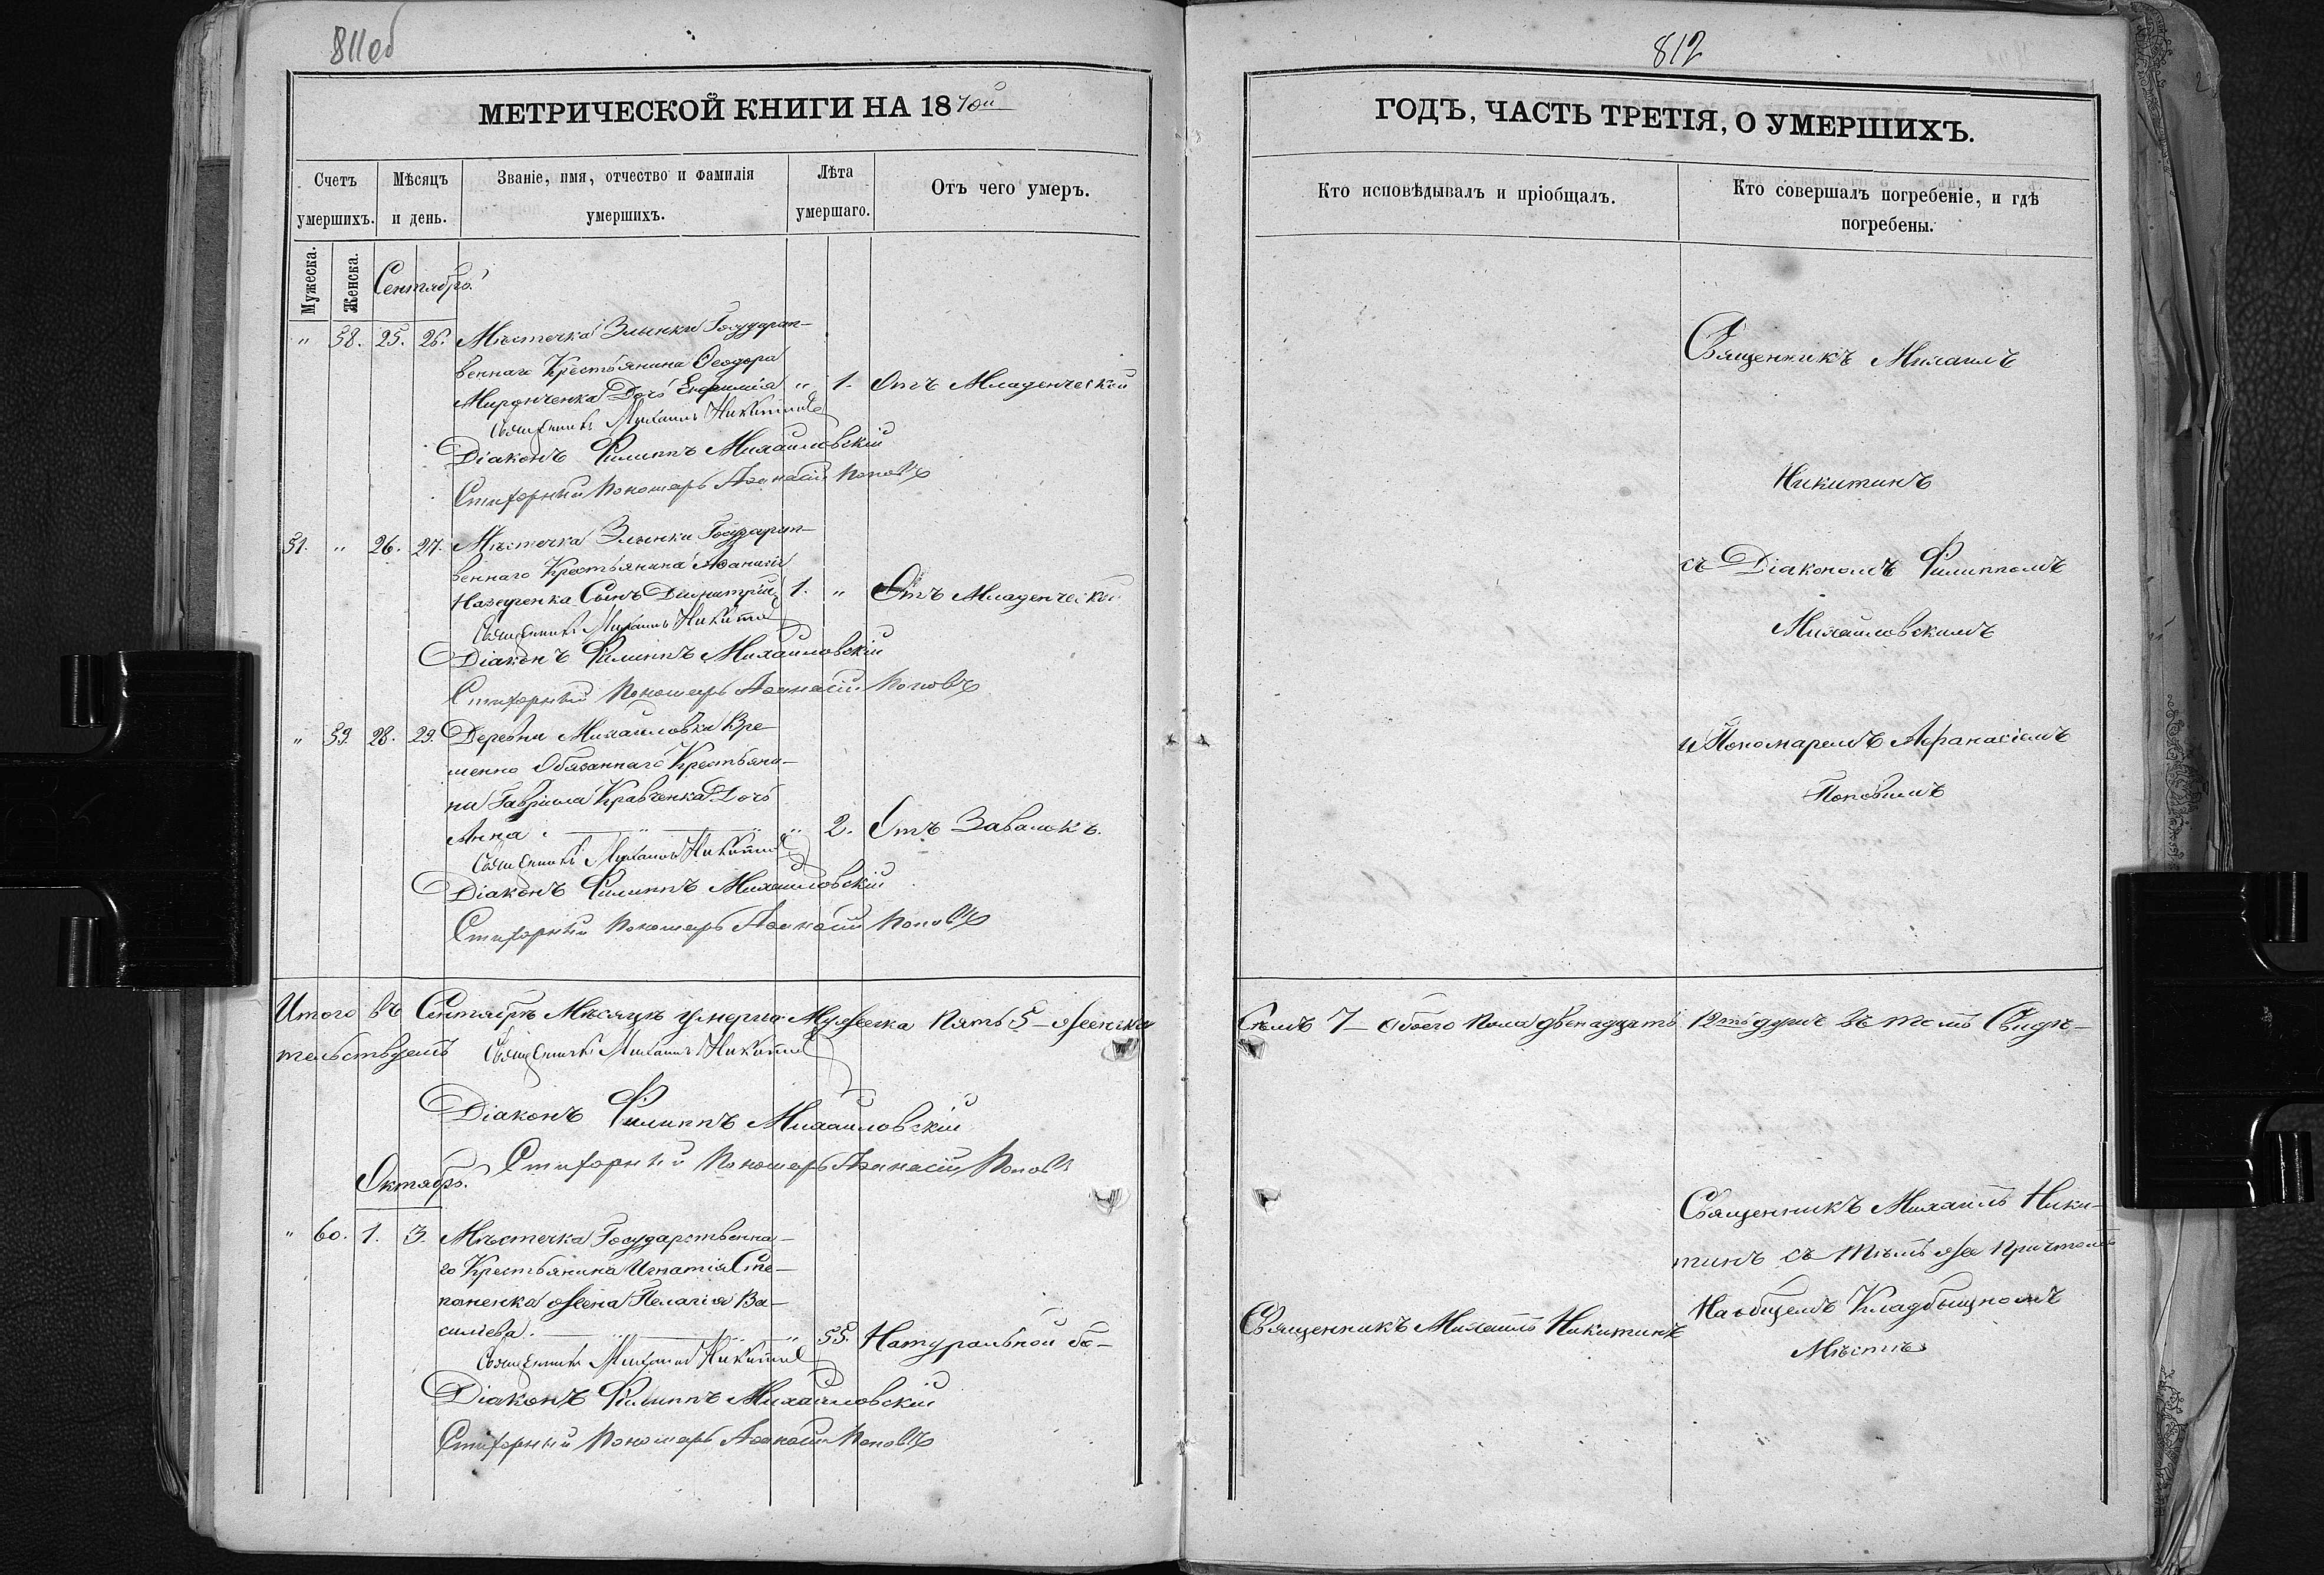 811об
МЕТРИЧЕСКОЙ КНИГИ НА 1870й
Счетъ умершихъ.
Мѣсяцъ и день.
Званіе, имя, отчество и фамилія умершихъ.
Лѣта умершаго.
Отъ чего умеръ.
Мужеска.
Женска.
Сентябрь.
" 58. 25. 26. Мѣстечка Злынки Государст-
веннаго Крестьянина Ѳеодора
Миронченка Дочь Евфимія " 1. Отъ Младенческой
Священникъ Михаилъ Никитинъ
Діаконъ Филиппъ Михайловскій
Стихарный Пономарь Аѳанасій Поповъ
51. " 26. 27. Мѣстечка Злынки Государст-
веннаго Крестьянина Аѳанасія
Назаренка Сынъ Димитрій 1. " Отъ Младенческой
Священникъ Михаилъ Никитинъ
Діаконъ Филиппъ Михайловскій
Стихарный Пономарь Аѳанасій Поповъ
" 59. 28. 29. Деревни Михайловки Вре-
менно Обязаннаго Крестьяни-
на Гавріила Кравченка Дочь
Анна. " " " 2. Отъ Завалокъ.
Священникъ Михаилъ Никитинъ
Діаконъ Филиппъ Михайловскій
Стихарный Пономарь Аѳанасій Поповъ
Итого въ Сентябрѣ Мѣсяцѣ умерло Мужеска Пять 5 – женска
тельствуемъ Священникъ Михаилъ Никитинъ
Діаконъ Филиппъ Михайловскій
Стихарный Пономарь Аѳанасій Поповъ
Октябрь.
" 60. 1. 3. Мѣстечка Государственна-
го Крестьянина Игнатія Сте-
паненка жена Пелагія Ва-
сильева. " " " 55. Натуральной бо-
Священникъ Михаилъ Никитинъ
Діаконъ Филиппъ Михайловскій
Стихарный Пономарь Аѳанасій Поповъ
812
ГОДЪ, ЧАСТЬ ТРЕТІЯ, О УМЕРШИХЪ.
Кто исповѣдывалъ и пріобщалъ.
Кто совершалъ погребеніе, и гдѣ
погребены.
Священникъ Михаилъ
Никитинъ
съ Діакономъ Филиппомъ
Михайловскимъ
и Пономаремъ Афанасіемъ
Поповымъ
Семь 7 – обоего пола двенадцать 12ть душъ въ томъ Свидѣ-
Священникъ Михаилъ Ники-
тинъ съ тѣмъ же причтомъ
На общемъ Кладбищномъ
Мѣстѣ
Священникъ Михаилъ Никитинъ